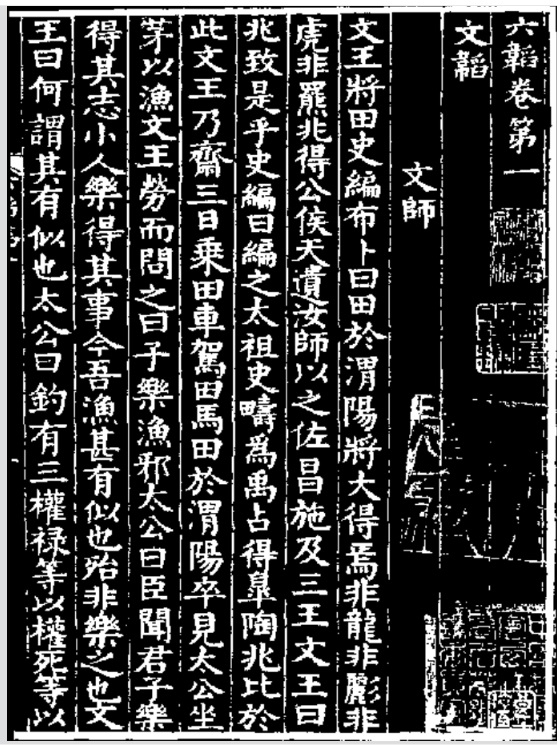 六韜卷第一
文韜
文師
文王將田史編布卜曰田於渭陽將大得焉非龍非彲非
虎非羆兆得公侯天遺汝師以之佐昌施及三王文王曰
兆致是乎史編曰編之太祖史疇爲禹占得皐陶兆比於
此文王乃齋三日乗田車駕田馬田於渭陽卒見太公坐
茅以漁文王勞而問之曰子樂漁邪太公曰臣聞君子樂
得其志小人樂得其事今吾漁甚有似也殆非樂之也文
王曰何謂其有似也太公曰釣有三權禄等以權死等以